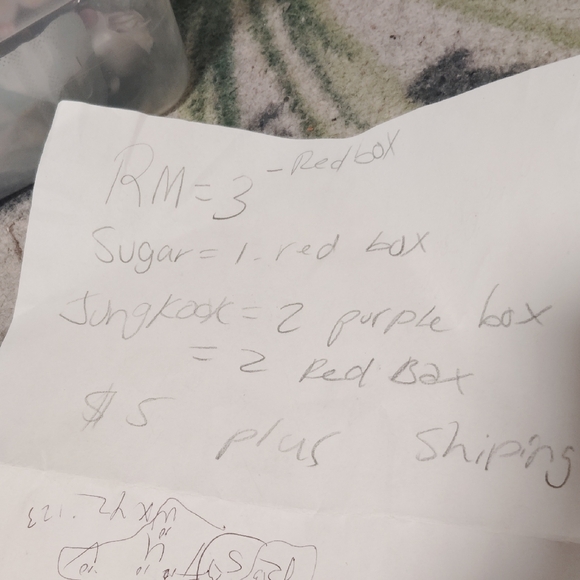 RM = 3 - Red box
Sugar = 1 - red box
Jungkook = 2 purple box
= 2 Red Box
$5 plus Shiping